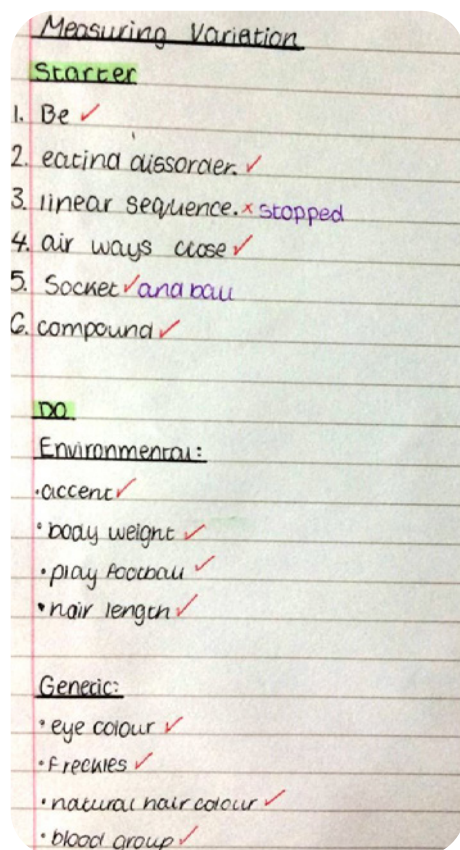 Measuring Variation
Starter
1. Be ✓
2. eating dissorder. ✓
3. linear sequence. × stopped
4. air ways close ✓
5. Socket ✓ and ball
6. compound ✓
DO
Environmental:
• accent ✓
• body weight ✓
• play football ✓
• hair length ✓
Genetic:
• eye colour ✓
• freckles ✓
• natural hair colour ✓
• blood group ✓